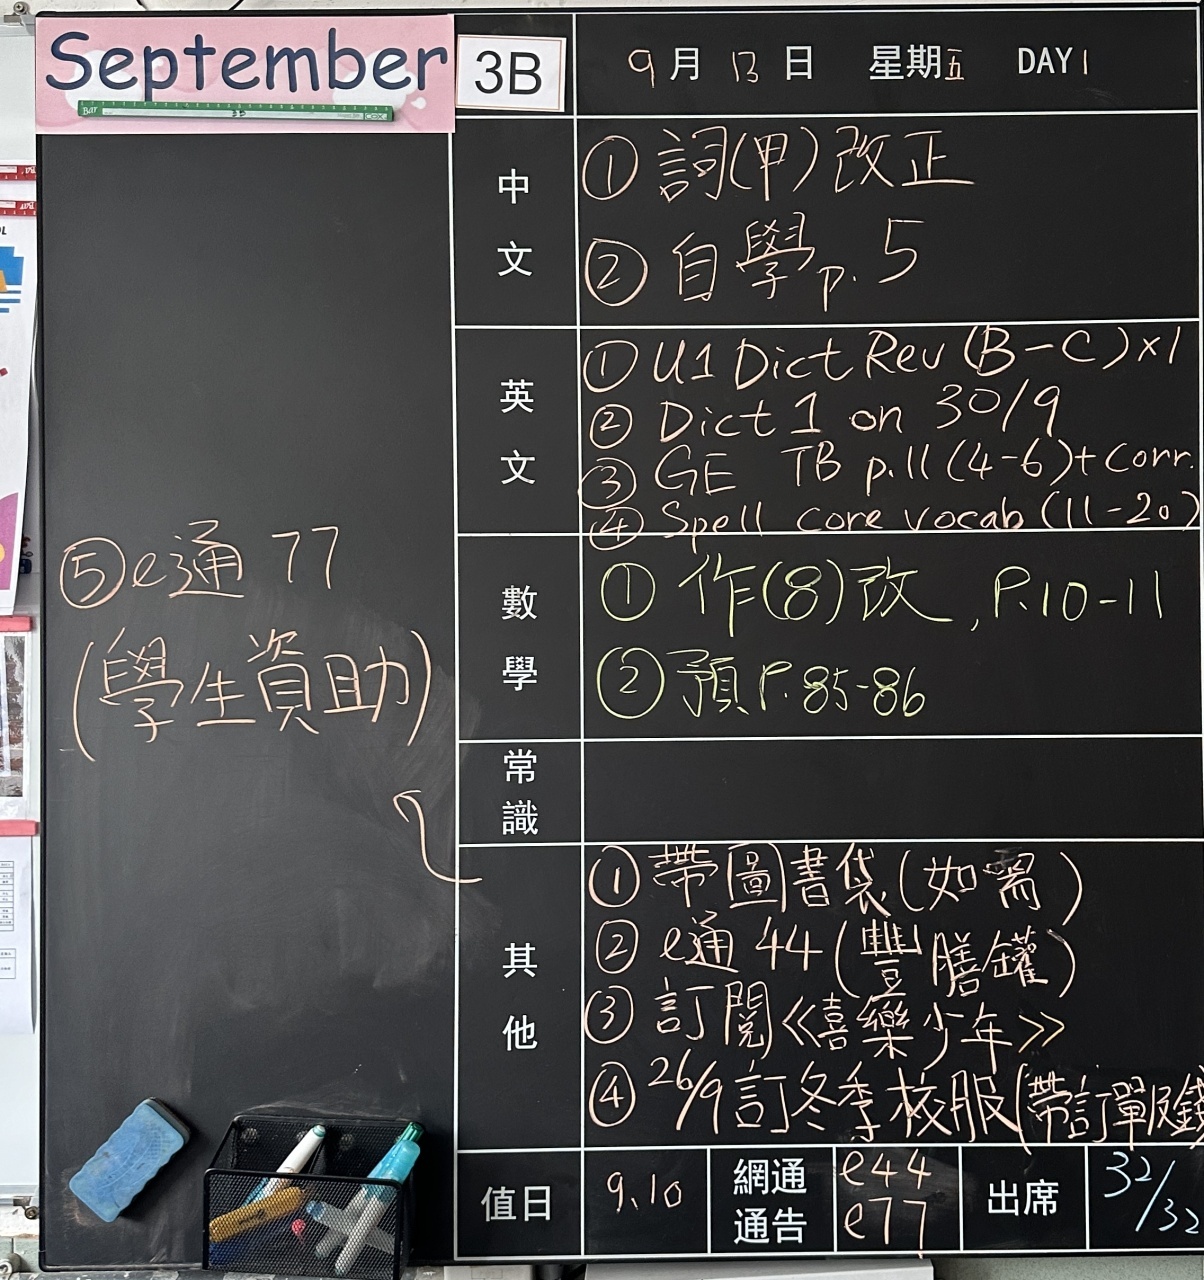 September
3B
9月13日 星期五 DAY1
中文
① 詞(甲)改正
② 自學p.5
英文
① U1 Dict Rev (B-C)×1
② Dict 1 on 30/9
③ GE TB p.11(4-6)+corr.
④ Spell core vocab (11-20)
數學
① 作(8)改, P.10-11
② 預P.85-86
常識
其他
① 帶圖書袋(如需)
② e通44(豐膳罐)
③ 訂閱《喜樂少年》
④ 26/9訂冬季校服(帶訂單及錢
⑤e通 77
(學生資助)
值日 9,10
網通通告 e44
e77
出席 32/32